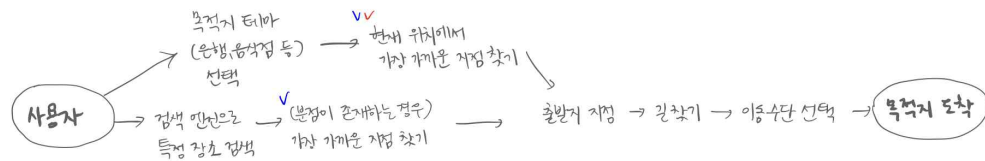 목적지 테마
(은행,음식점 등)
선택
현재 위치에서
가장 가까운 지점 찾기
사용자
검색 엔진으로
특정 장소 검색
(분점이 존재하는 경우)
가장 가까운 지점 찾기
출발지 지정
길 찾기
이동수단 선택
목적지 도착